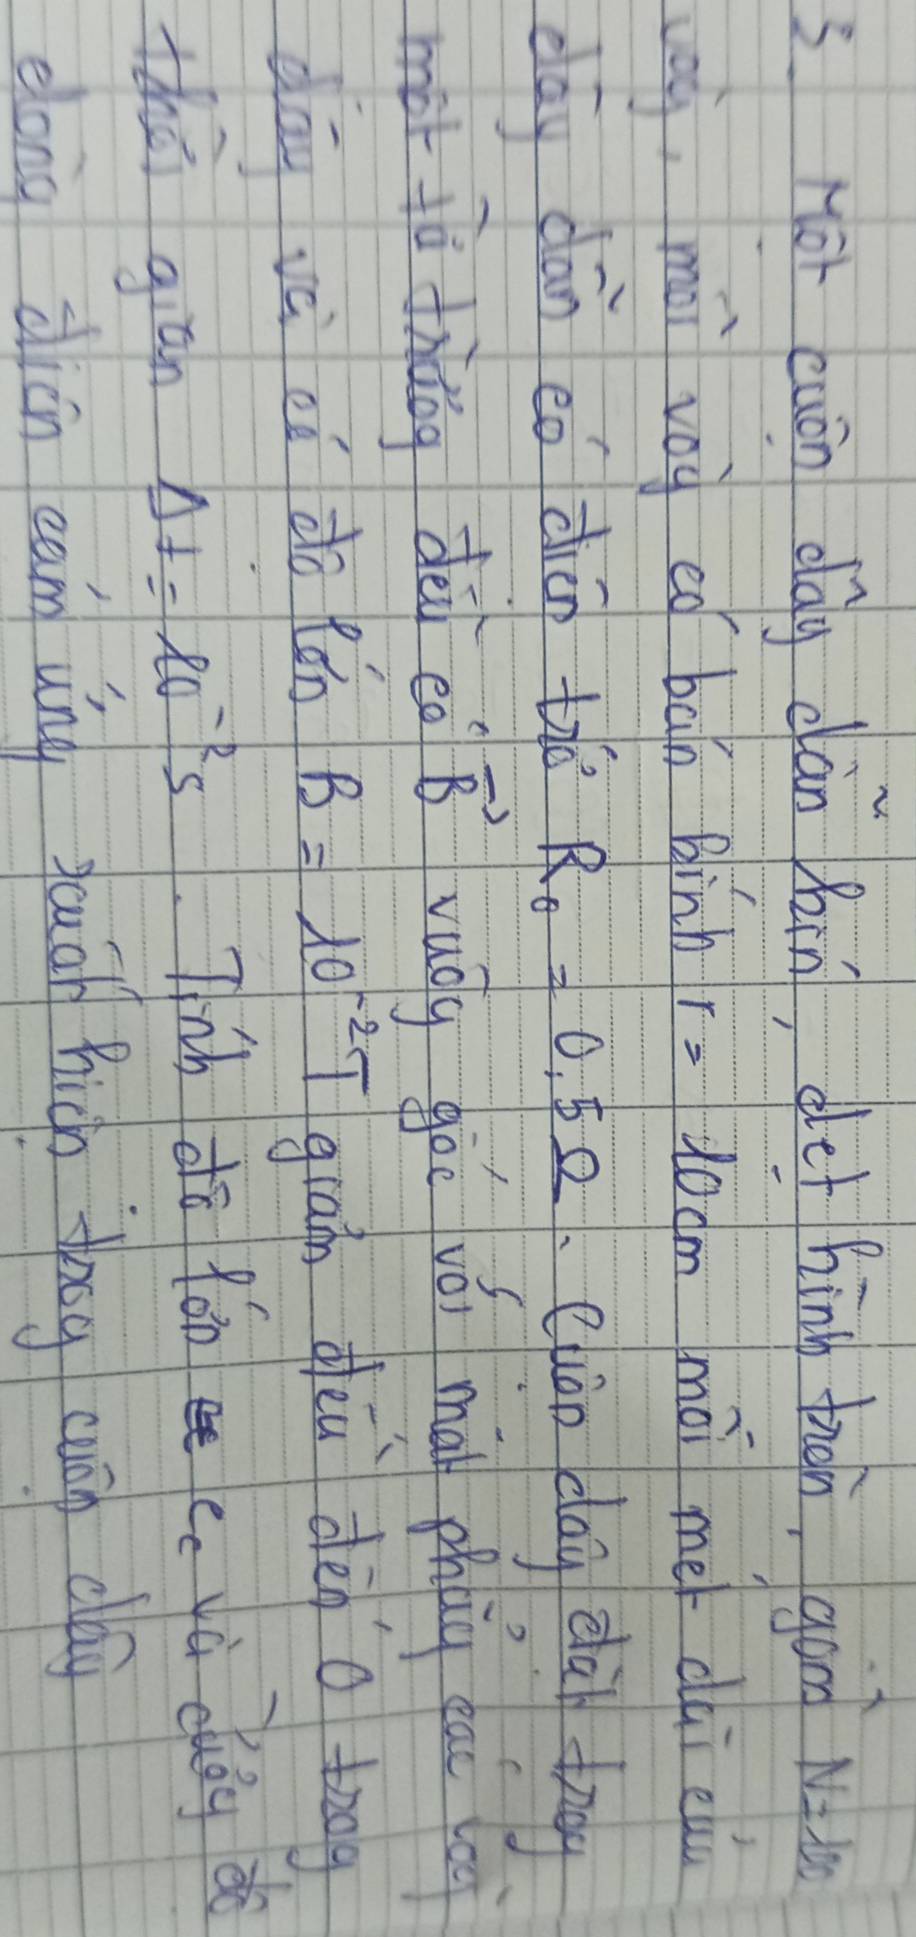 3. Một cuộn dây dẫn kín, dẹt hình tròn, gồm N=100
vòng, mỗi vòng có bán kính r = 10cm mỗi mét dài của
dây dẫn có điện trở R₀ = 0,5Ω. Cuộn dây đặt trong
một từ trường đều có B⃗ vuông góc với mặt phẳng các vòng
dây và có độ lớn B = 10⁻²T giảm đều đến 0 trong
thời gian Δt = 10⁻²s. Tính độ lớn e_c và cường độ
dòng điện cảm ứng xuất hiện trong cuộn dây